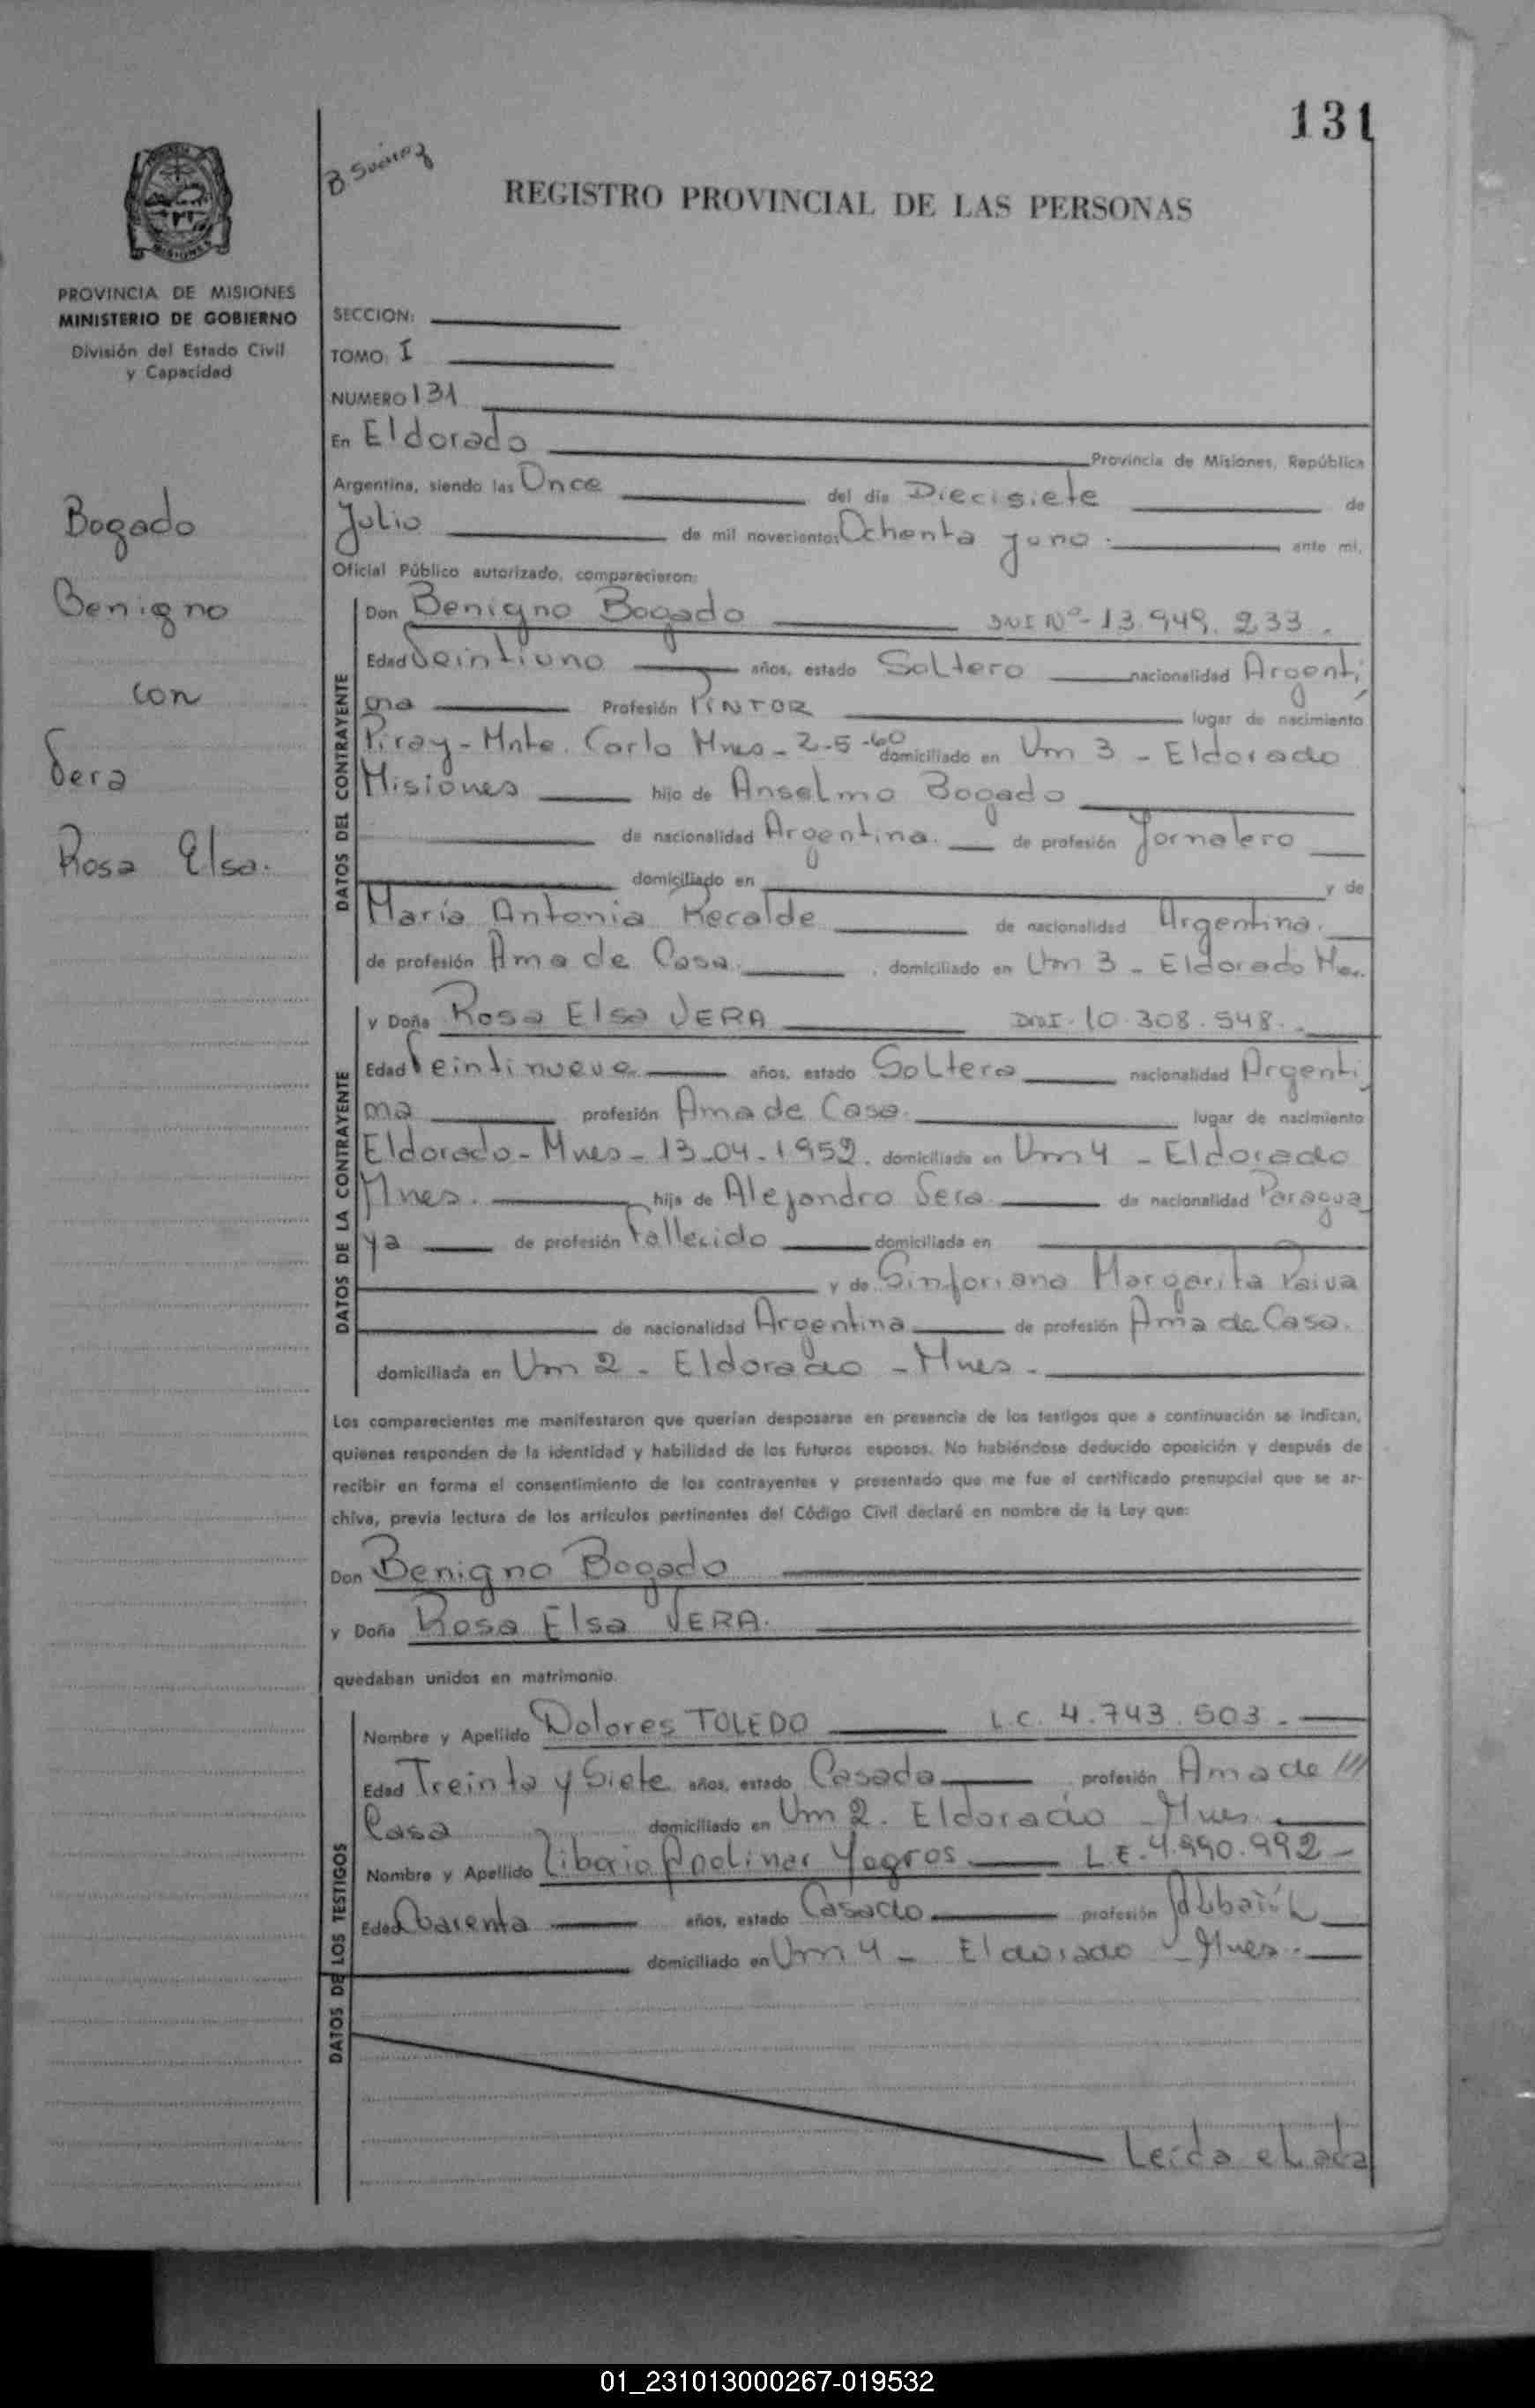 131
B Suarez
REGISTRO PROVINCIAL DE LAS PERSONAS
MISIONES
PROVINCIA DE MISIONES
MINISTERIO DE GOBIERNO
División del Estado Civil
y Capacidad
Bogado
Benigno
con
Vera
Rosa Elsa.
SECCION:
TOMO: I
NUMERO 131
En Eldorado Provincia de Misiones, República
Argentina, siendo las Once del día Diecisiete de
Julio de mil novecientos Ochenta y uno. ante mí,
Oficial Público autorizado, comparecieron:
DATOS DEL CONTRAYENTE
Don Benigno Bogado DNI Nº- 13.949.233.
Edad Veintiuno años, estado Soltero nacionalidad Argenti
na Profesión PINTOR lugar de nacimiento
Piray - Mnte. Carlo Mnes - 2-5-60 domiciliado en Km 3 - Eldorado
Misiones hijo de Anselmo Bogado
de nacionalidad Argentina. de profesión Jornalero
domiciliado en y de
María Antonia Recalde de nacionalidad Argentina.
de profesión Ama de Casa. , domiciliado en Km 3 - Eldorado
DATOS DE LA CONTRAYENTE
y Doña Rosa Elsa VERA DNI. 10.308.548.
Edad Veintinueve años, estado Soltera nacionalidad Argenti
na profesión Ama de Casa. lugar de nacimiento
Eldorado - Mnes - 13-04-1952. domiciliada en Km 4 - Eldorado
Mnes. hija de Alejandro Vera. de nacionalidad Paragua
ya de profesión Fallecido domiciliada en
y de Sinforiana Margarita Paiva
de nacionalidad Argentina de profesión Ama de Casa.
domiciliada en Km 2 - Eldorado - Mnes -
Los comparecientes me manifestaron que querían desposarse en presencia de los testigos que a continuación se indican,
quienes responden de la identidad y habilidad de los futuros esposos. No habiéndose deducido oposición y después de
recibir en forma el consentimiento de los contrayentes y presentado que me fue el certificado prenupcial que se ar-
chiva, previa lectura de los artículos pertinentes del Código Civil declaré en nombre de la Ley que:
Don Benigno Bogado
y Doña Rosa Elsa VERA.
quedaban unidos en matrimonio.
DATOS DE LOS TESTIGOS
Nombre y Apellido Dolores TOLEDO L.C. 4.743.503.-
Edad Treinta y Siete años, estado Casada profesión Ama de ///
Casa domiciliado en Km 2. Eldorado - Mnes.
Nombre y Apellido Liborio Apolinar Yegros L.E. 4.990.992 -
Edad Cuarenta años, estado Casado profesión Albañil
domiciliado en Km 4 - Eldorado - Mnes.
Leída el acta
01_231013000267-019532